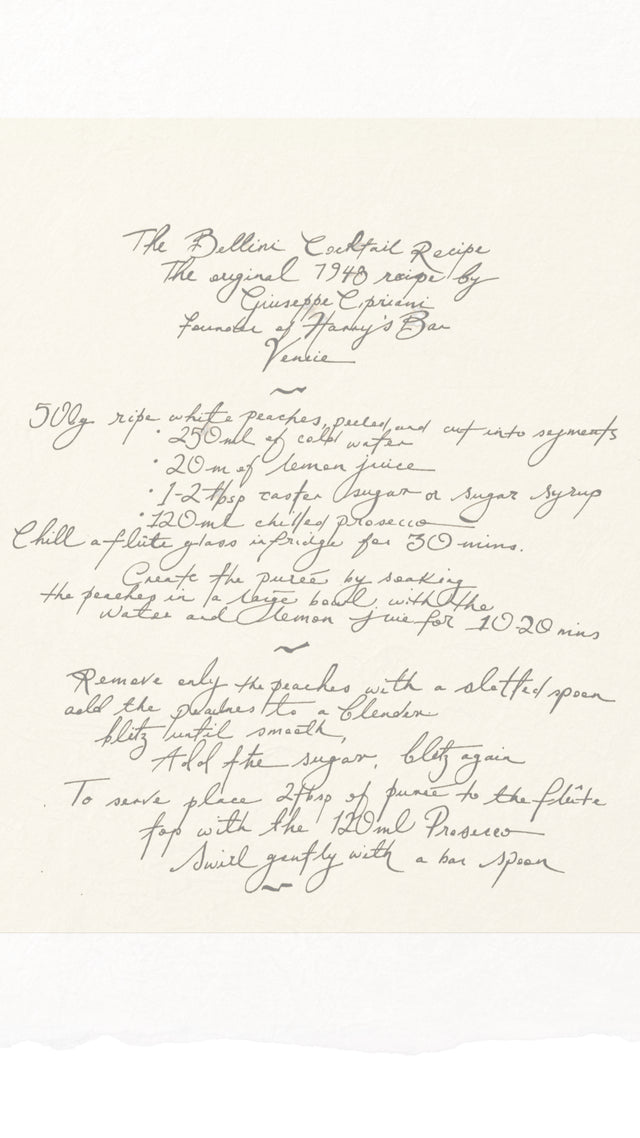 The Bellini Cocktail Recipe
The original 1948 recipe by
Giuseppe Cipriani
Founder of Harry's Bar
Venice
500g ripe white peaches, peeled, and cut into segments
• 250ml of cold water
• 20m of lemon juice
• 1-2 tbsp caster sugar or sugar syrup
• 120ml chilled prosecco
Chill a flûte glass in fridge for 30 mins.
Create the purée by soaking
the peaches in a large bowl with the
water and lemon juice for 10-20 mins
Remove only the peaches with a slotted spoon
add the peaches to a blender
blitz until smooth,
Add the sugar, blitz again
To serve place 2tbsp of purée to the flûte
top with the 120ml Prosecco
Swirl gently with a bar spoon